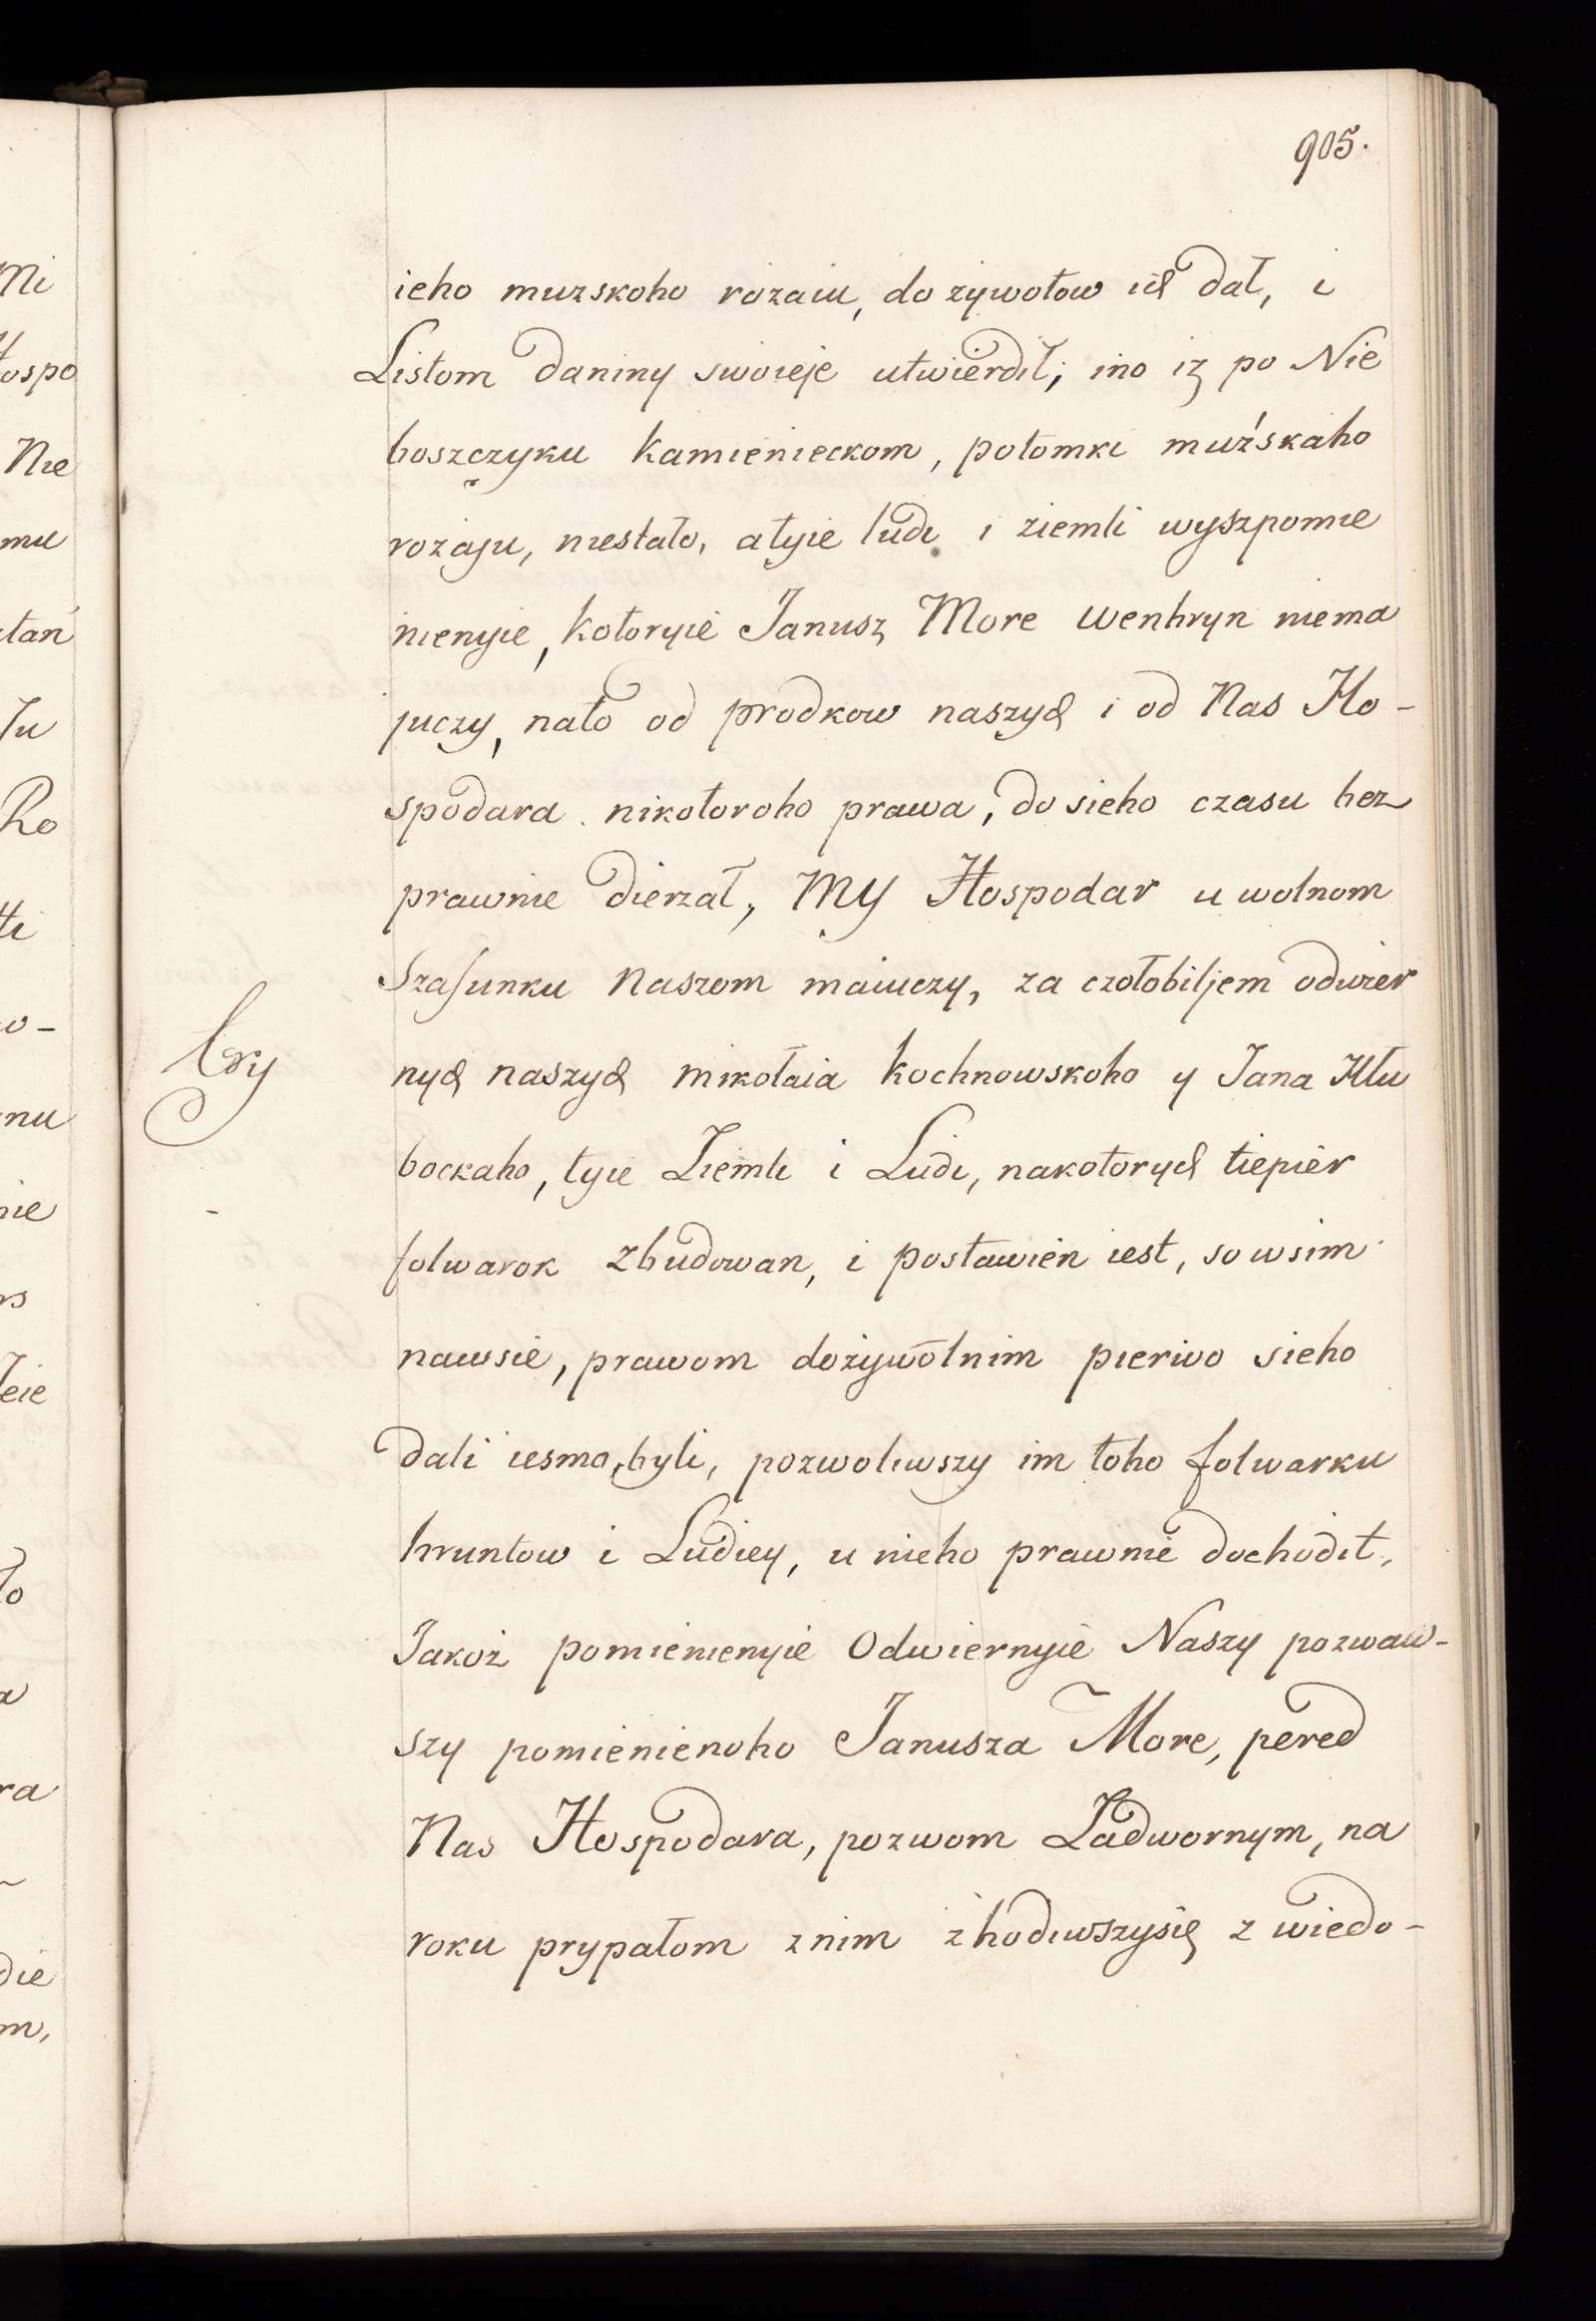 905.
ieho muzskoho rożaiu, do zywotow ich dał, i
Listom daniny swoieje utwierdił; ino iz po Nie
boszczyku Kamienieckom, potomki muźskaho
rożaju, niestało, a tyie ludi i ziemli wyszpomie
nienyie, kotoryie Janusz More Wenhryn niema
juczy, nato od prodkow naszych i od Nas Ho-
spodara nikotoroho prawa, do sieho czasu bez
prawnie dierzał, MY Hospodar u wolnom
Szafunku Naszom maiuczy, za czołobitjem odwier
nych naszych Mikołaia Kochnowskoho y Jana Hłu
bockaho, tyie Ziemli i Ludi, nakotorych tiepier
folwarok zbudowan, i postawien iest, so wsim
nawsie, prawom dożywotnim pierwo sieho
dali iesmo, byli, pozwoliwszy im toho folwarku
hruntow i Ludiey, u nieho prawnie dochodit,
Jakoż pomienienyie Odwiernyie Naszy pozwaw-
szy pomienienoho Janusza More, pered
Nas Hospodara, pozwom Zadwornym, na
roku prypałom znim zhodiwszysię z wiedo-